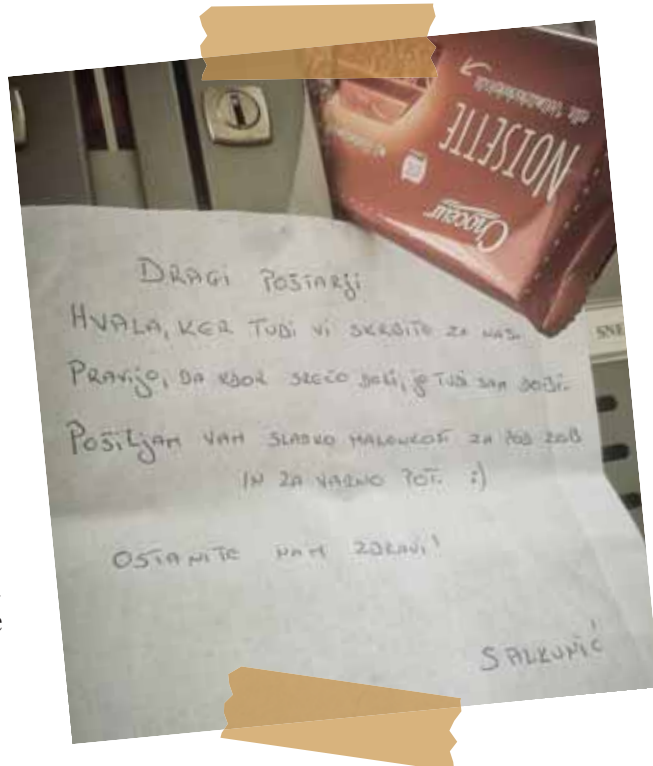 NOISETTE
Choceur
DRAGI POŠTARJI
HVALA, KER TUDI VI SKRBITE ZA NAS.
PRAVIJO, DA KDOR SREČO DELI, JE TUDI SAM DOBI.
POŠILJAM VAM SLADKO MALENKOST ZA POD ZOB
IN ZA VARNO POT. :)
OSTANITE NAM ZDRAVI!
SALKUNIĆ
SNE
e